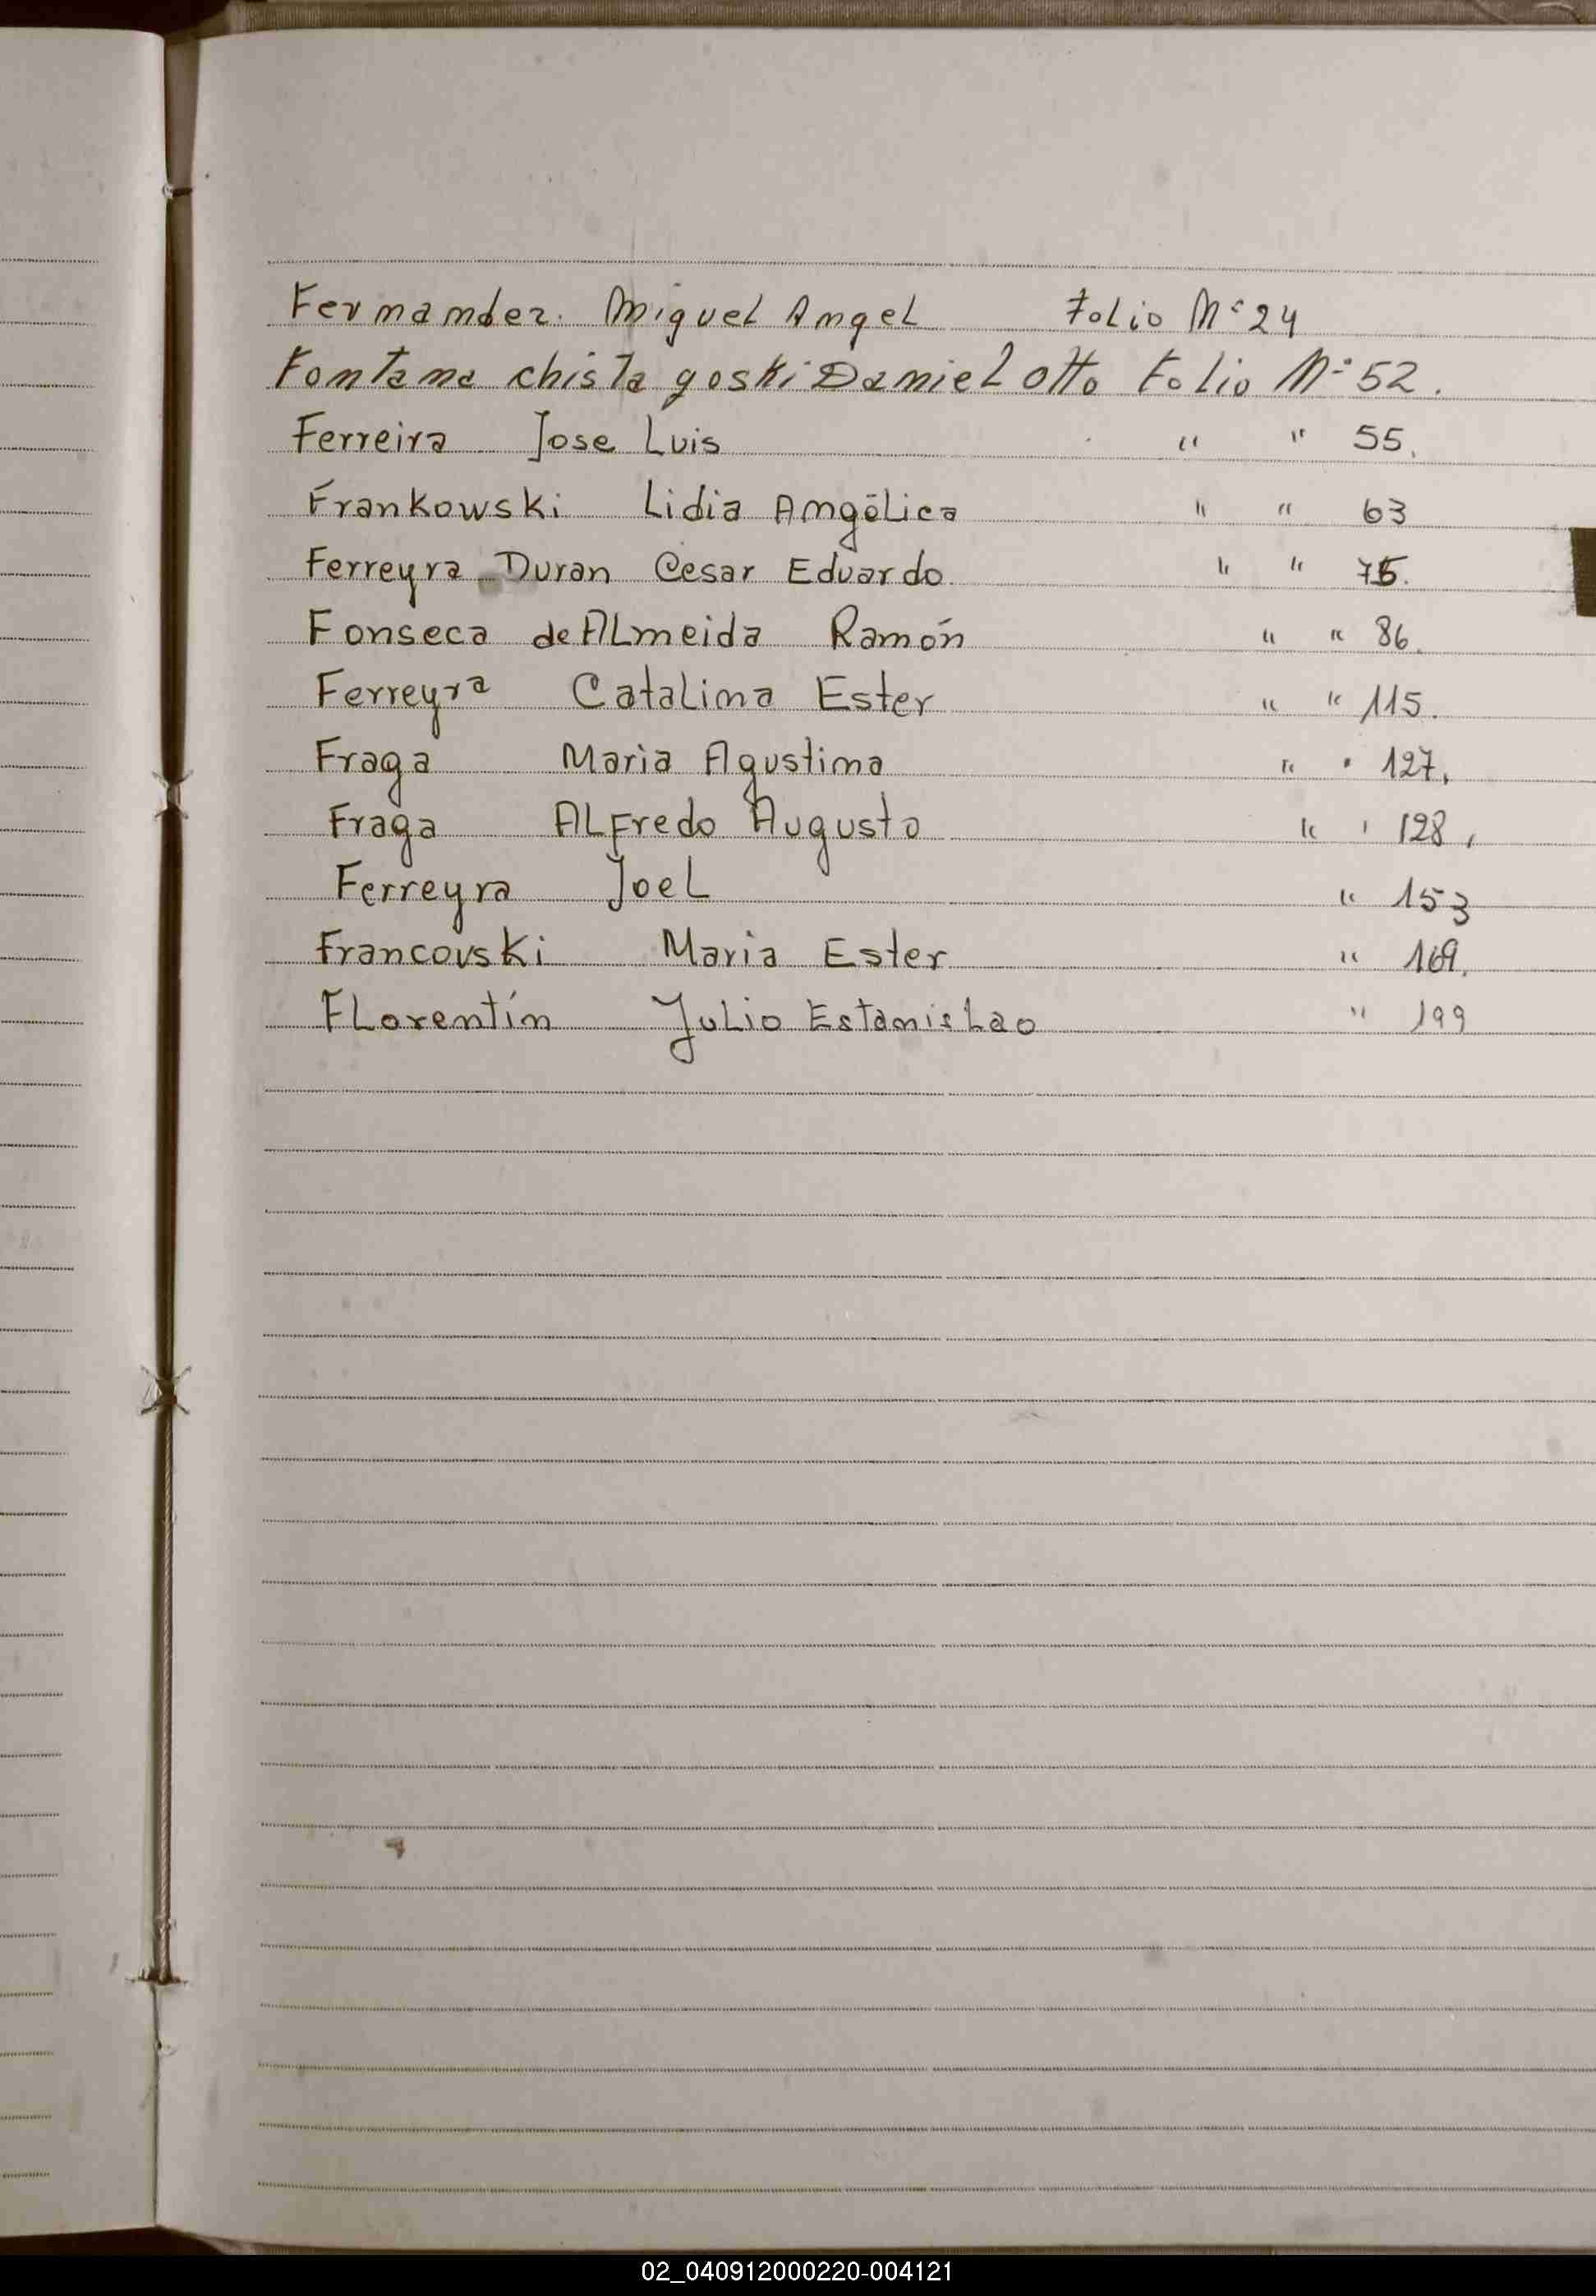 Fernandez. Miguel Angel Folio Nº 24
Fontana chista goski Daniel Otto Folio Nº 52.
Ferreira Jose Luis " " 55.
Frankowski Lidia Angélica " " 63
Ferreyra Duran Cesar Eduardo " " 75.
Fonseca de ALmeida Ramón " " 86.
Ferreyra Catalina Ester " " 115.
Fraga Maria Agustina " " 127.
Fraga ALFredo Augusto " " 128.
Ferreyra JoeL " 153
Francovski Maria Ester " 169.
FLorentín Julio EstanisLao " 199
02_040912000220-004121